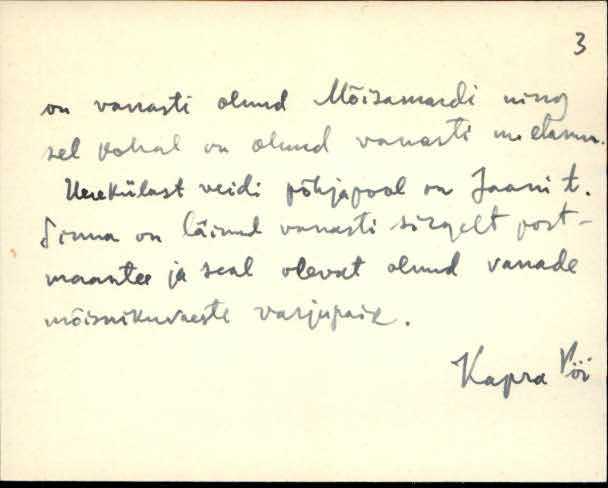 3
on vanasti olnud Mõisamardi ning
sel kohal on olnud vanasti m. elamu.
Uuekülast veidi põhjapool on Jaani t.
Sinna on läinud vanasti sirgelt post-
maantee ja seal olevat olnud vanade
mõisnikuvaeste varjupaik.
Kapra Pöi